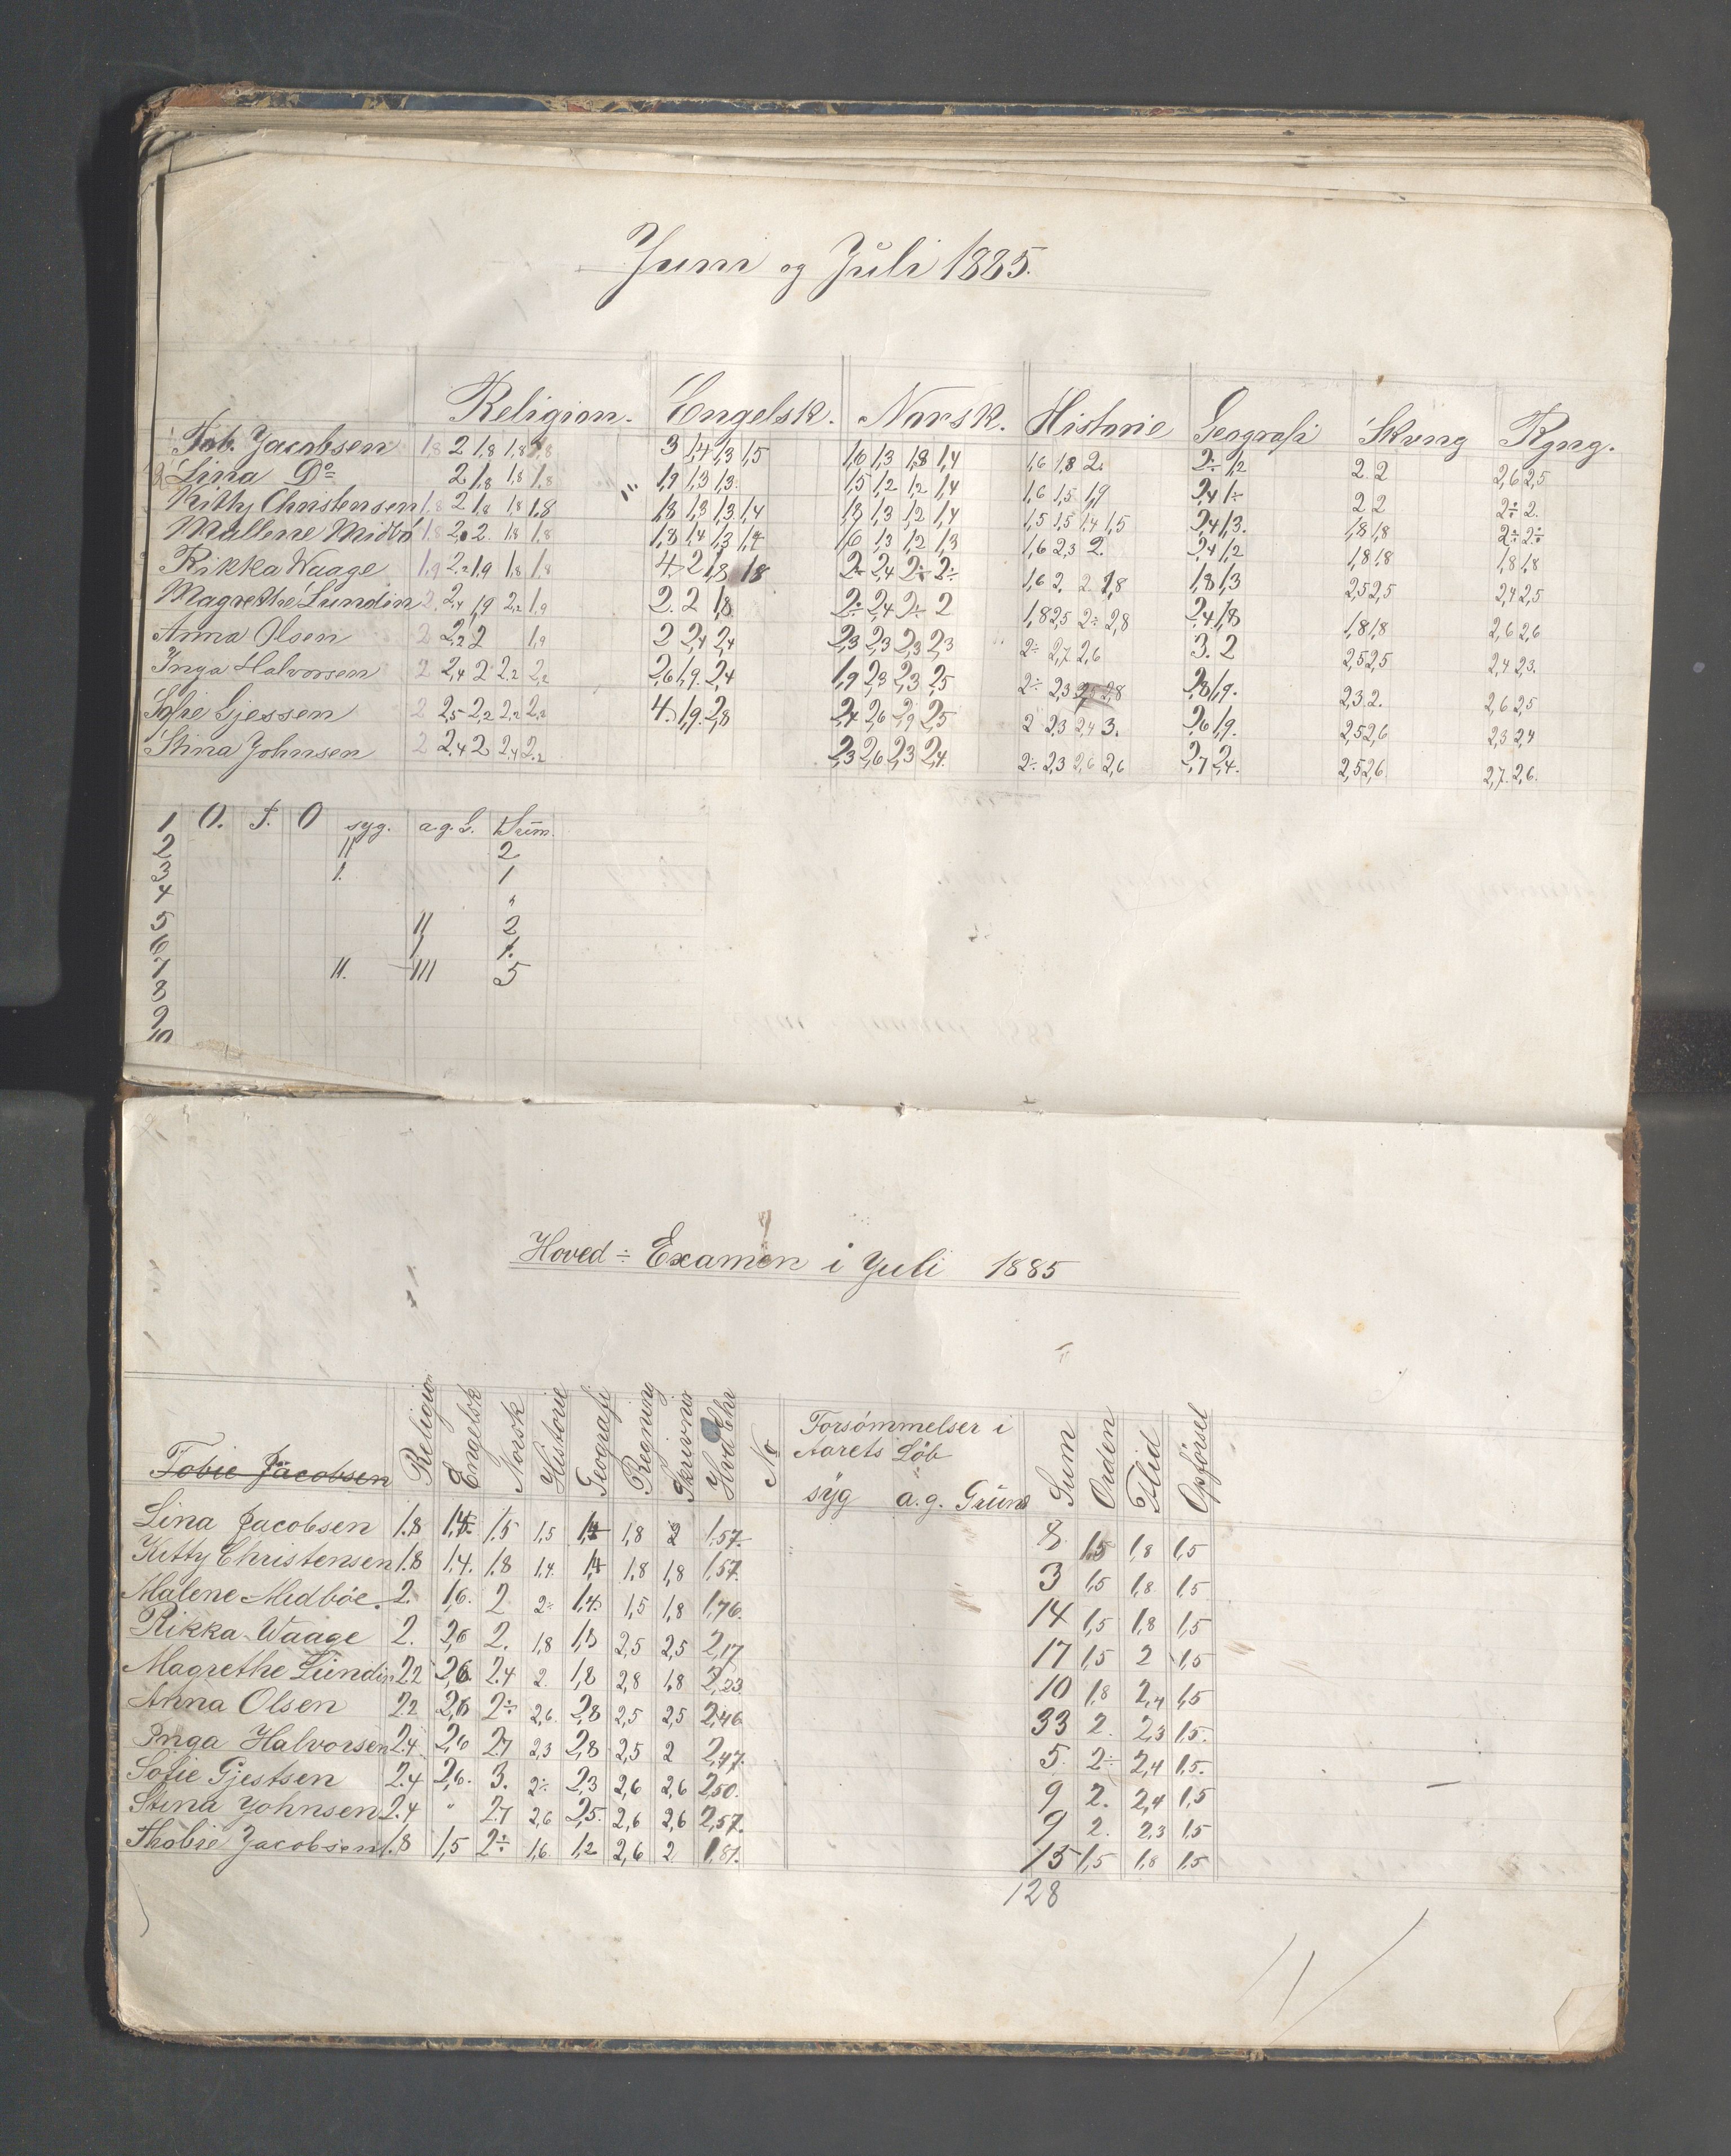 Juni og Juli 1885.
Religion. Engelsk. Norsk. Historie Geografi Skvng Rgng.
Tob. Jacobsen 1,8 2 1,8 1,8 1,8 3 1,4 1,3 1,5 1,6 1,3 1,8 1,4 1,6 1,8 2. 2÷ 1,2 2 2 2,6 2,5
Lina Do 2 1,8 1,8 1,8 1,9 1,3 1,3. 1,5 1,2 1,2 1,4 1,6 1,5 1,9 2,4 1÷ 2 2 2÷ 2.
Kitty Christensen 1,8 2 1,8 1,8 1,8 1,8 1,3 1,3 1,4 1,8 1,3 1,2 1,4 1,5 1,5 1,4 1,5 2,4 1,3. 1,8 1,8 2÷ 2÷
Mallene Midbö 1,8 2 2. 1,8 1,8 1,8 1,4 1,3 1,4 1,6 1,3 1,2 1,3 1,6 2,3 2. 2,4 1,2 1,8 1,8 1,8 1,8
Rikka Waage 1,9 2,2 1,9 1,8 1,8 4. 2 1,8 1,8 2÷ 2,4 2÷ 2÷ 1,6 2. 2 1,8 1,8 1,3 2,5 2,5 2,4 2,5
Magrethe Lundin 2. 2,4 1,9 2,2 1,9 2. 2 1,8 2÷ 2,4 2÷ 2 1,8 2,5 2÷ 2,8 2,4 1,8 1,8 1,8 2,6 2,6
Anna Olsen 2 2,2 2 1,9 2 2,4 2,4 2,3 2,3 2,3 2,3 2÷ 2,7 2,6 3. 2 2,5 2,5 2,4 2,3.
Inga Halvorsen 2 2,4 2 2,2 2,2 2,6 1,9. 2,4 1,9 2,3 2,3 2,5 2÷ 2,3 2,8 2,8 1,9. 2,3 2. 2,6 2,5
Sofie Gjessen 2 2,5 2,2 2,2 2,2 4. 1,9. 2,8 2,4 2,6 2,9 2,5 2 2,3 2,4 3. 2,6 1,9. 2,5 2,6 2,3 2,4
Stina Johnsen 2 2,4 2 2,4 2,2 2,3 2,6 2,3 2,4. 2÷ 2,3 2,6 2,6 2,7 2,4. 2,5 2,6 2,7. 2,6.
1 O. F. O syg. a.g. G. Sum.
2 11 2
3 1. 1
4 "
5 11 2
6 1 1.
7 11. 111 5
8
9
10
Hoved÷Examen i Juli 1885
Religion Engelsk Norsk Historie Geografi Regning Skrivning No Forsömmelser i Aarets Löb
Tobie Jacobsen syg a.g. Grund Sum Orden Flid Opförsel
Lina Jacobsen 1.8 1,4. 1,5 1,5 1,4 1,8 2 1,57. 8 1,5 1,8 1,5
Kitty Christensen 1.8 1.4. 1.8 1,4. 1,4 1,8 1,8 1,57. 3 1,5 1,8 1,5
Malene Midböe. 2. 1,6. 2 2÷ 1,4. 1,5 1,8 1,76. 14 1,5 1,8 1,5
Rikka Waage 2. 2,6 2. 1,8 1,8 2,5 2,5 2,17 17 1,5 2 1,5
Magrethe Lundin 2.2 2,6. 2.4 2. 1,8 2,8 1,8 2,23 10 1,8 2,4 1,5
Anna Olsen 2.2 2,6 2÷ 2,6. 2,8 2,5 2,5 2,46 33 2. 2,3 1,5.
Inga Halvorsen 2.4 2,6 2.7 2,3 2,8 2,5 2 2,47. 5. 2÷ 2,4 1,5.
Sofie Gjestsen 2.4 2,6. 3. 2÷ 2,3 2,6 2,6 2,50. 9 2. 2,4 1,5
Stina Johnsen 2.4 " 2.7 2,6 2,5. 2,6 2,6 2,57. 9 2. 2,3 1,5
Thobie Jacobsen 1.8 1,5 2÷ 1,6. 1,2 2,6 2 1,81. 15 1,5 1,8 1,5
128